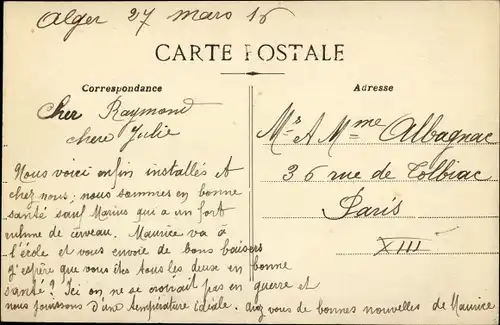 Alger 27 mars 16
CARTE POSTALE
Correspondance
Adresse
Cher Raymond
chere Julie
Nous voici enfin installés et
chez nous; nous sommes en bonne
santé sauf Marius qui a un fort
rhume de cerveau. Maurice va à
l'école et vous envoie de bons baisers
J'espère que vous êtes tous les deux en bonne
santé? Ici on ne se croirait pas en guerre et
nous jouissons d'une température idéale. avez vous de bonnes nouvelles de Maurice.
Mr & Mme Albagnac
36 rue de Tolbiac
Paris
XIII